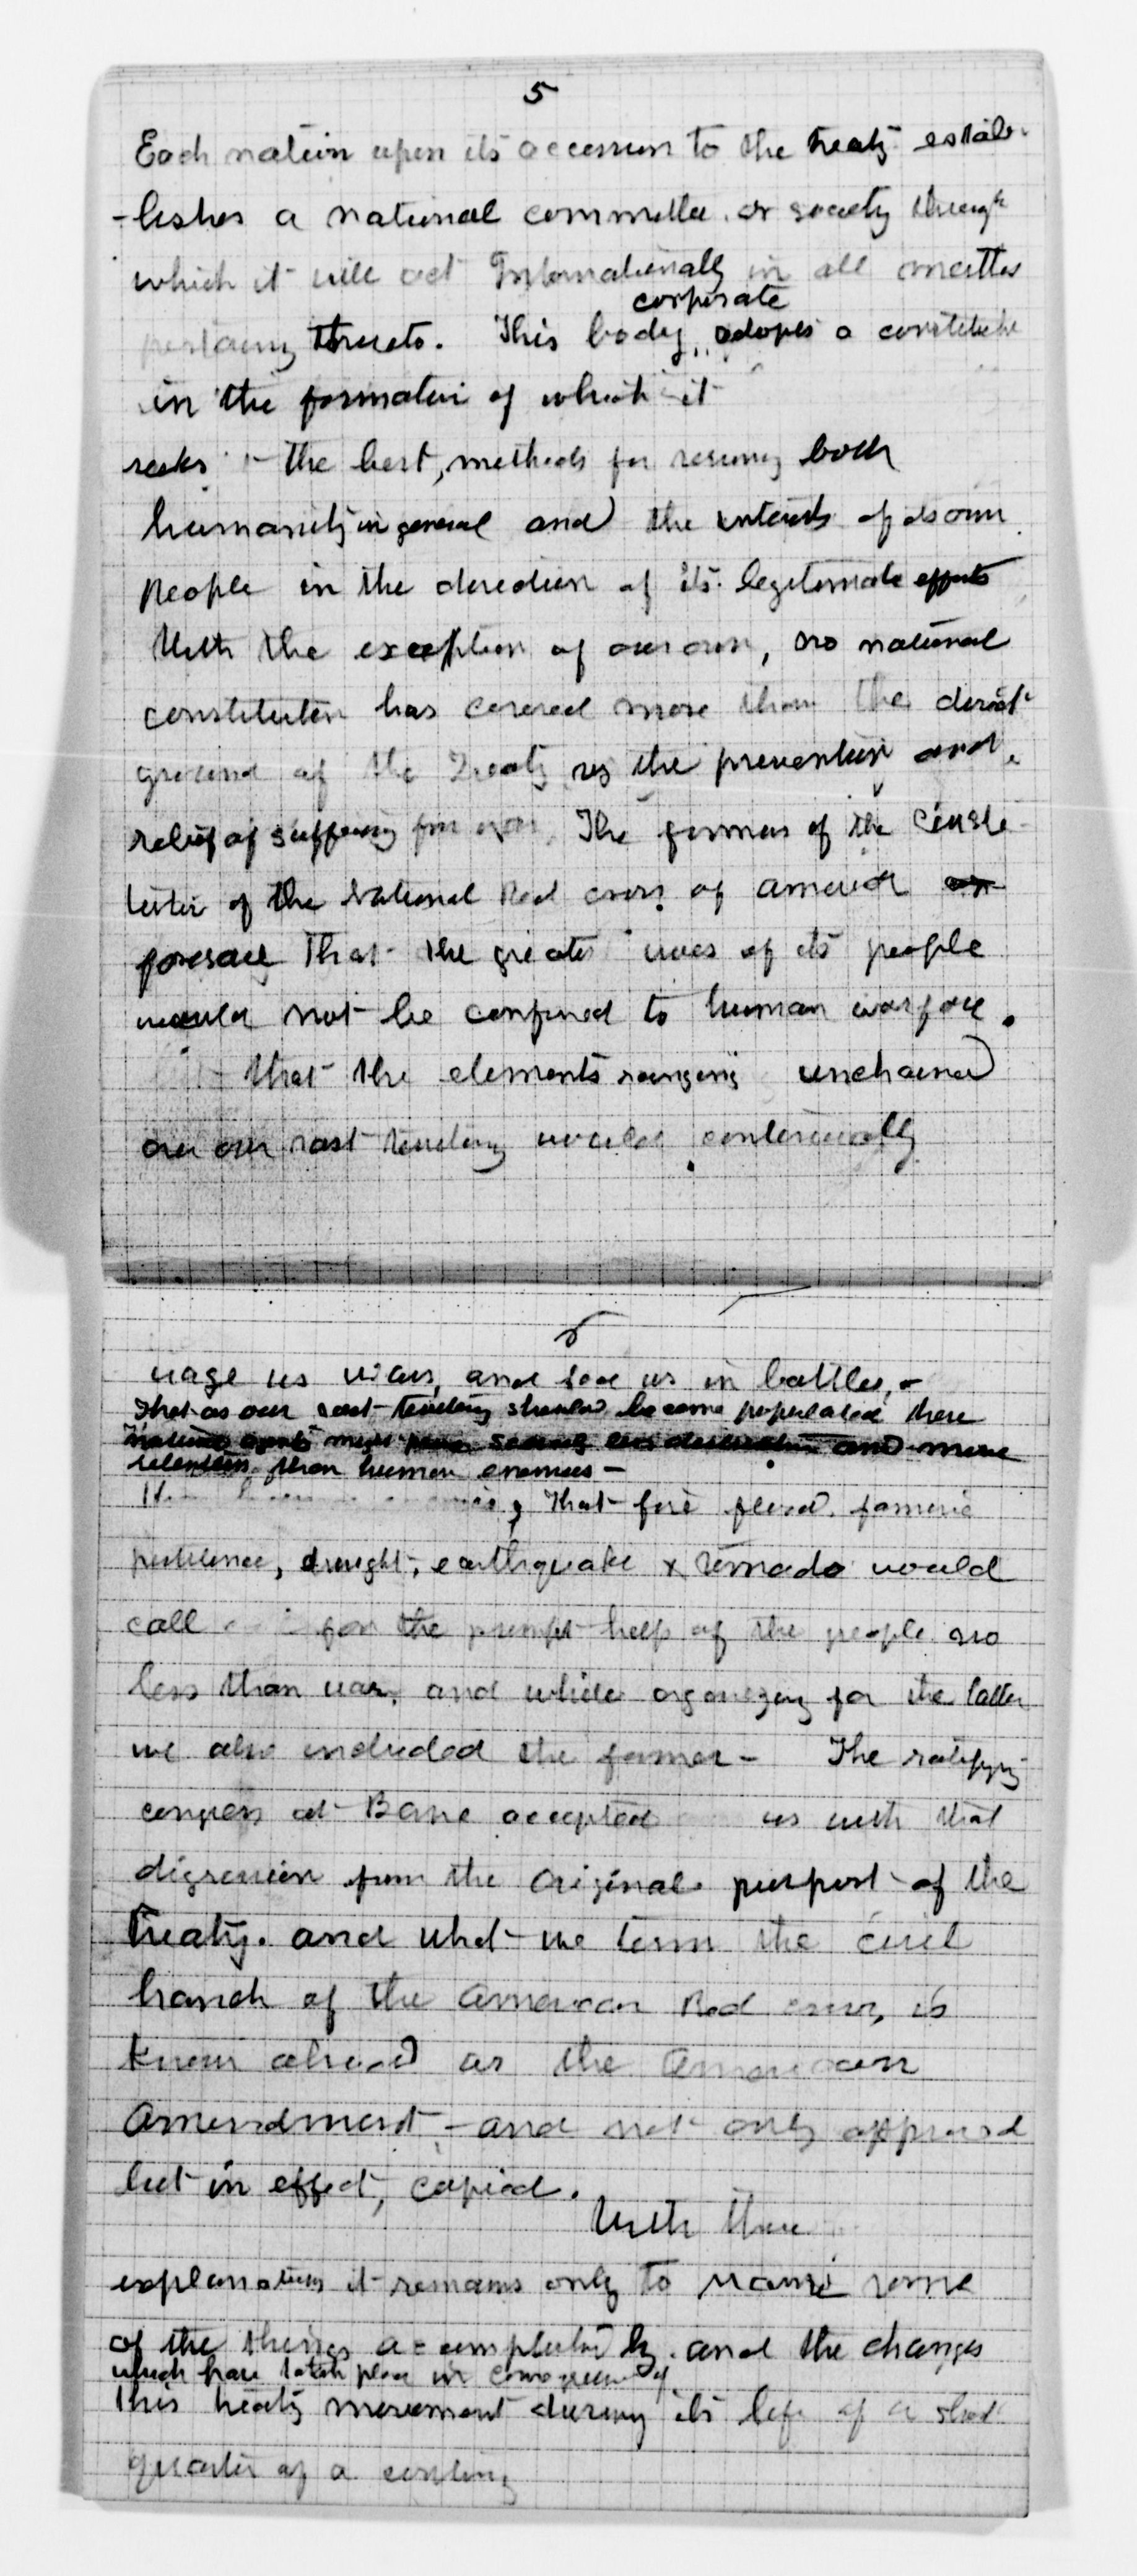 5
Each nation upon its accession to the treaty estab-
-lishes a national committee or society through
which it will act Internationally in all matters
corporate
pertaining thereto. This body, adopts a constitution
in the formation of which it
seeks the best, methods for serving both
humanity in general and the interests of its own
People in the direction of its legitimate efforts
With the exception of our own, no national
constitution has covered more than the direct
ground of the Treaty, the prevention and
relief of suffering from war. The formers of the Consti-
tution of the National Red cross of america
foresaw that the greater woes of its people
would not be confined to human warfare.
that the elements raging unchained
over our vast territory would continually
6
wage us wars, and face us in battles, -
That as our vast territory should become populated these
natural agents might prove scarcely less destructive and more
relentless than human enemies -
that fire flood, famine
pestilence, drought, earthquake & tornado would
call for the prompt help of the people no
less than war, and while organizing for the latter
we also included the former - The ratifying
congress at Berne accepted us with that
digression from the original purport of the
Treaty. and what we term the civil
branch of the American Red cross, is
known abroad as the American
amendment, - and not only approved
but in effect, copied.
With these
explanations it remains only to name some
of the things accomplished by and the changes
which have taken place in consequence of
this treaty movement during its life of a short
quarter of a century